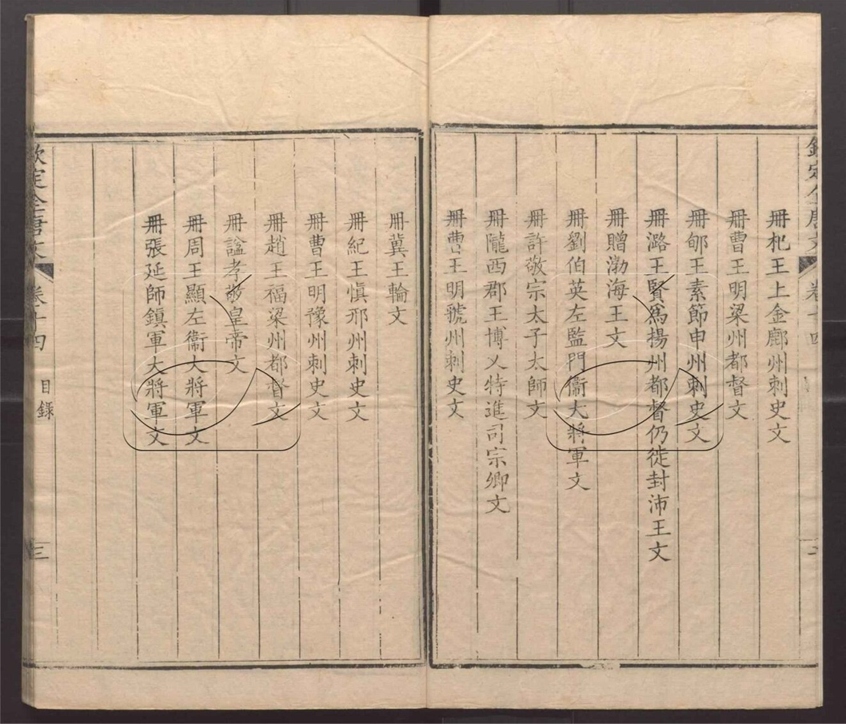 欽定全唐文
卷十四
冊杞王上金鄜州刺史文
冊曹王明梁州都督文
冊郇王素節申州刺史文
冊潞王賢為揚州都督仍徙封沛王文
冊贈渤海王文
冊劉伯英左監門衞大將軍文
冊許敬宗太子太師文
冊隴西郡王博乂特進司宗卿文
冊曹王明虢州刺史文
冊冀王輪文
冊紀王慎邢州刺史文
冊曹王明豫州刺史文
冊趙王福梁州都督文
冊諡孝敬皇帝文
冊周王顯左衞大將軍文
冊張延師鎮軍大將軍文
欽定全唐文
卷十四
目錄
三